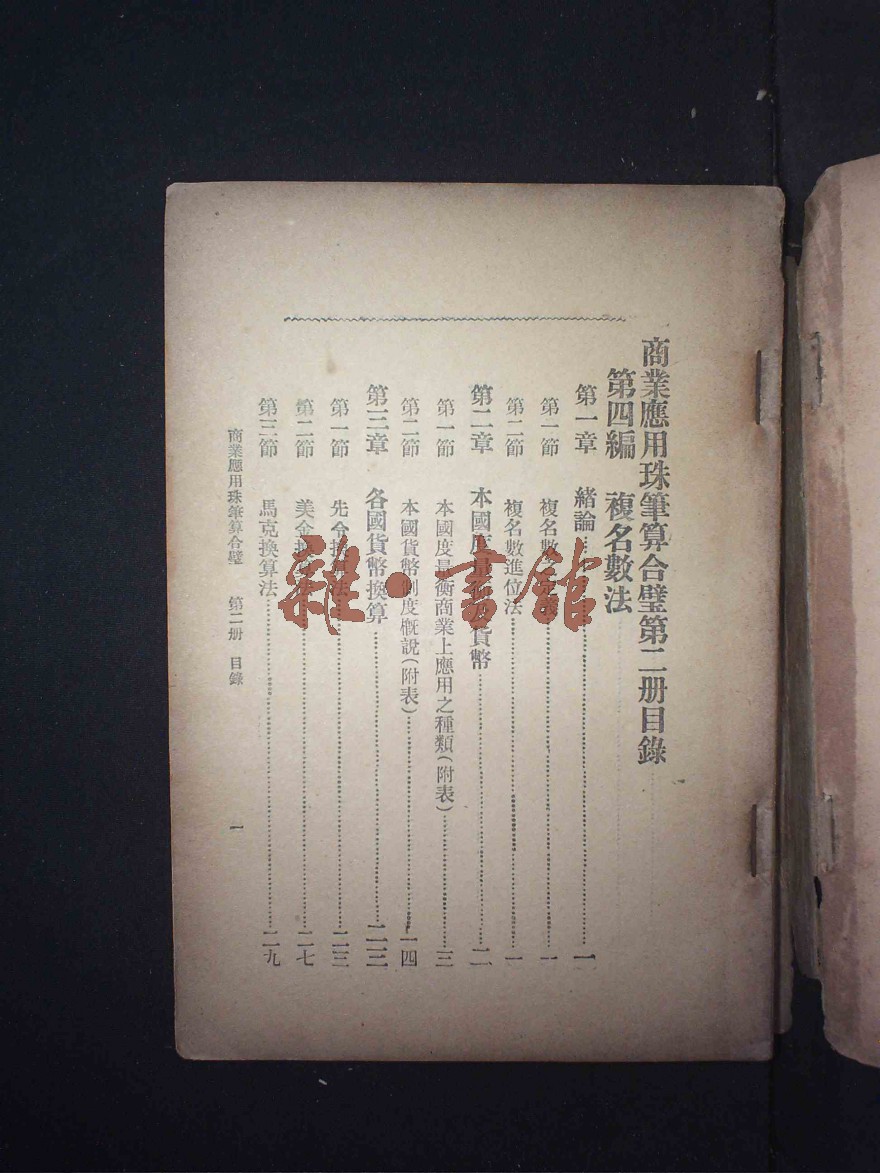 商業應用珠筆算合璧第二册目錄
第四編 複名數法
第一章 緒論 一
第一節 複名數之定義 一
第二節 複名數進位法 一
第二章 本國度量衡及貨幣 二
第一節 本國度量衡商業上應用之種類(附表) 三
第二節 本國貨幣制度槪說(附表) 一四
第三章 各國貨幣換算 二三
第一節 先令換算法 二三
第二節 美金換算法 二七
第三節 馬克換算法 二九
商業應用珠筆算合璧 第二册 目錄 一
雜·書館